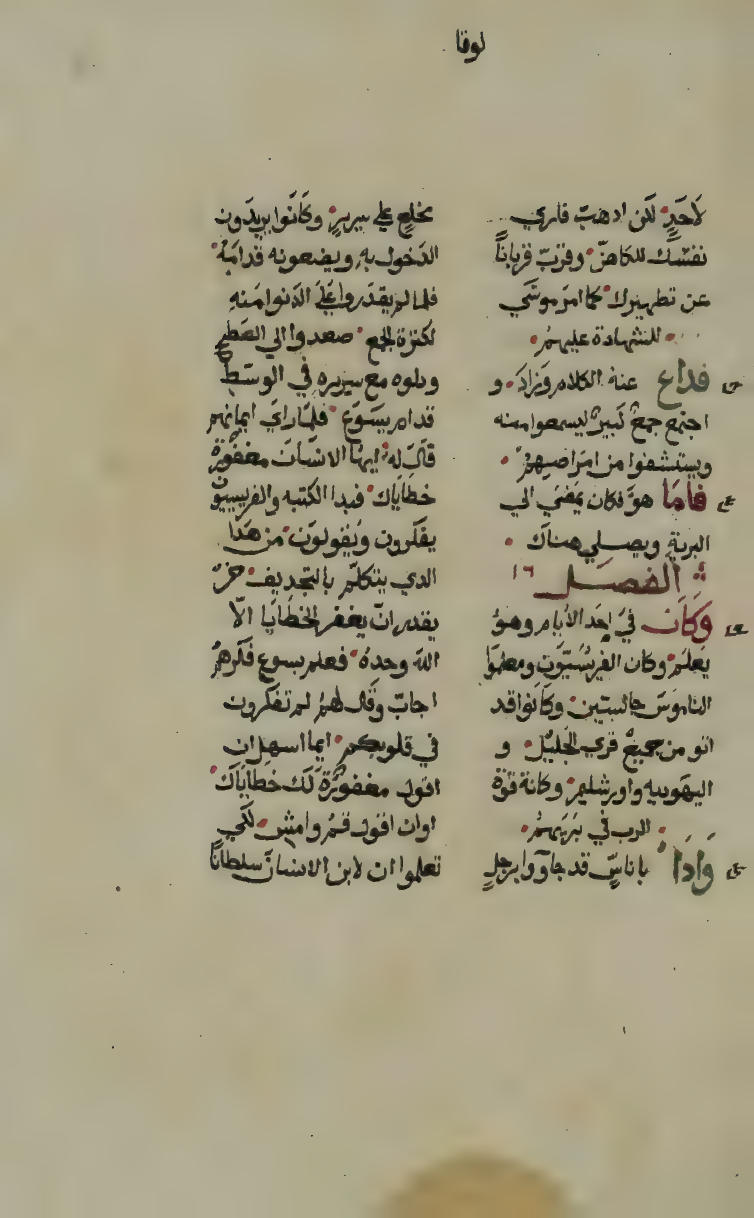 لوقا
لاَحَدٍ لكن ادهبّ فاري
نفسّك للكاهنّ وقربّ قرباناً
عن تطهيرك كما امرَ موسَي
للشهادة عليهمُ
فداع عنهُ الكلام وَزادَ و
اجتمع جمعٌ كَبيرٌ ليسمعوا منه
ويستشفوا من امرَاضهِمُ
فامَا هوَ فكان يمَضي الي
البريةِ ويصلي هناكَ
الفصل ١٦
وَكَانَ فيَ احَد الأيام وهوُ
يَعلمَ وكان الفريسُيّوَن ومعلموَا
الناموسَ جالسّين وكَانوا قد
اتو من جميعْ قري الجليُل و
اليهَوديه واورشليمَ وكانة قوَة
الرب في بُريهمُ
وَادَا باناسٌ قد جاوَوا برجلٍ
مخلعٍ علي سريرٍ وكَانَوا يريدَون
الدَخول بهِ ويضعونه قدامَهُ
فلما لم يقدَروا عَلىَ الدَنوا مَنهِ
لكثرَة الجمع صعدوا الي السَطحِ
ودلوه مع سريرهِ في الوسَطَ
قدام يسَوَعَ فلمّا راي ايمانهم
قالَ لهُ ايهّا الانسّانَ مغفورَة
خطَاياك فبدا الكتبه والفريسيوُن
يفكرون ويَقولوَن من هَدا
الدي يتكلّم بالتجديف منّ
يقدر انّ يغفر الخطايا الّا
اللهَ وحدهُ فعلم يسوع فكرهمُ
اجابّ وقَال لهمُ لم تفكرون
في قلوبكم ايما اسهل ان
اقول مغفورَة لَك خطاَياَك
او ان اقول قمُ وامشِ لكَي
تعلموا ان لابن الانسَانّ سلطاناً